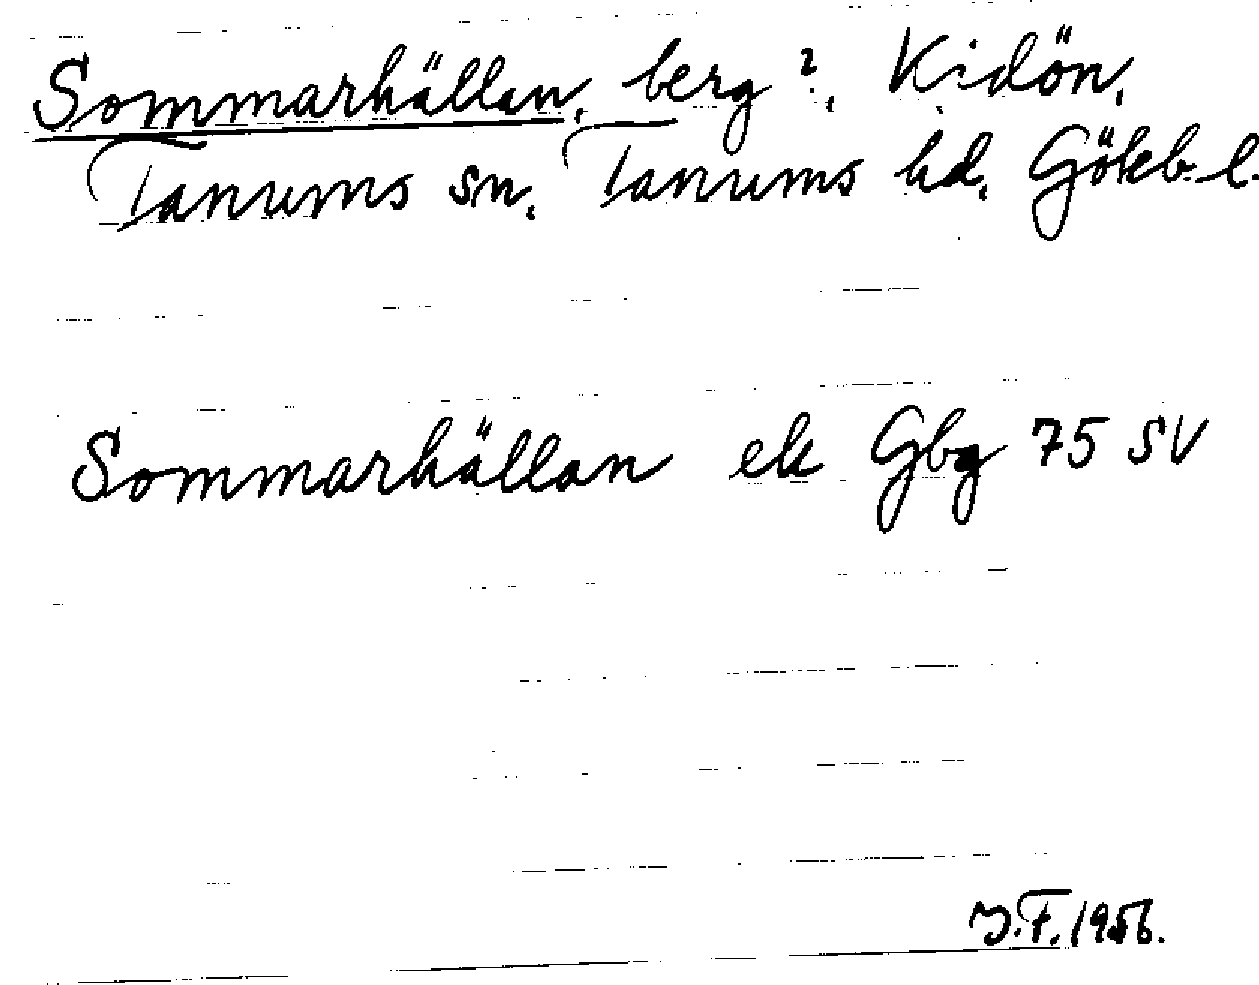 Sommarhällan, berg?, Kidön,
Tanums sn. Tanums hd. Göteb. l.
Sommarhällan ek Gbg 75 SV
J.F. 1956.